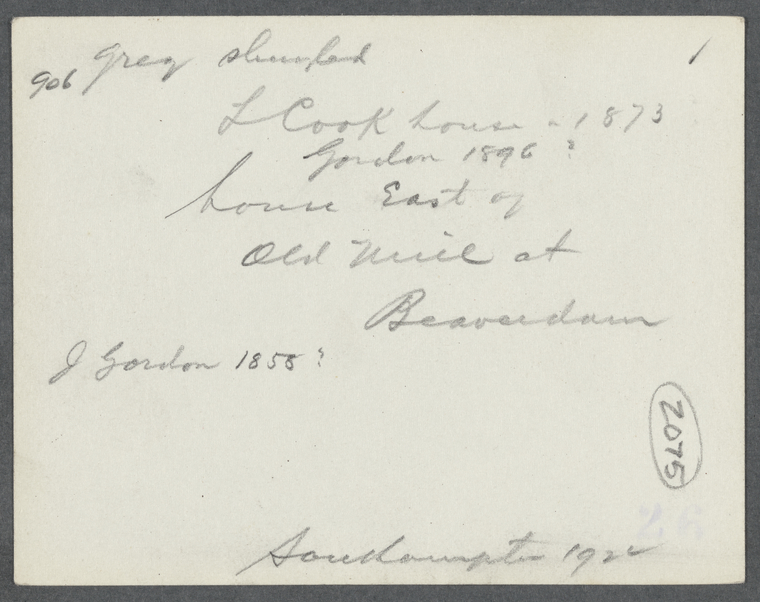 906 Grey shingled 1
L Cook house - 1873
Gordon 1896 ?
house East of
Old Mill at
Beaverdam
J Gordon 1858 ?
2075
Southampton 1922